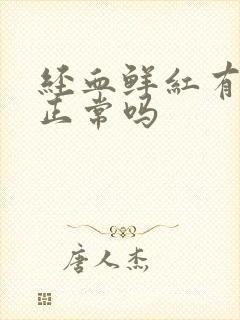 经血鲜红有
正常吗
唐人杰